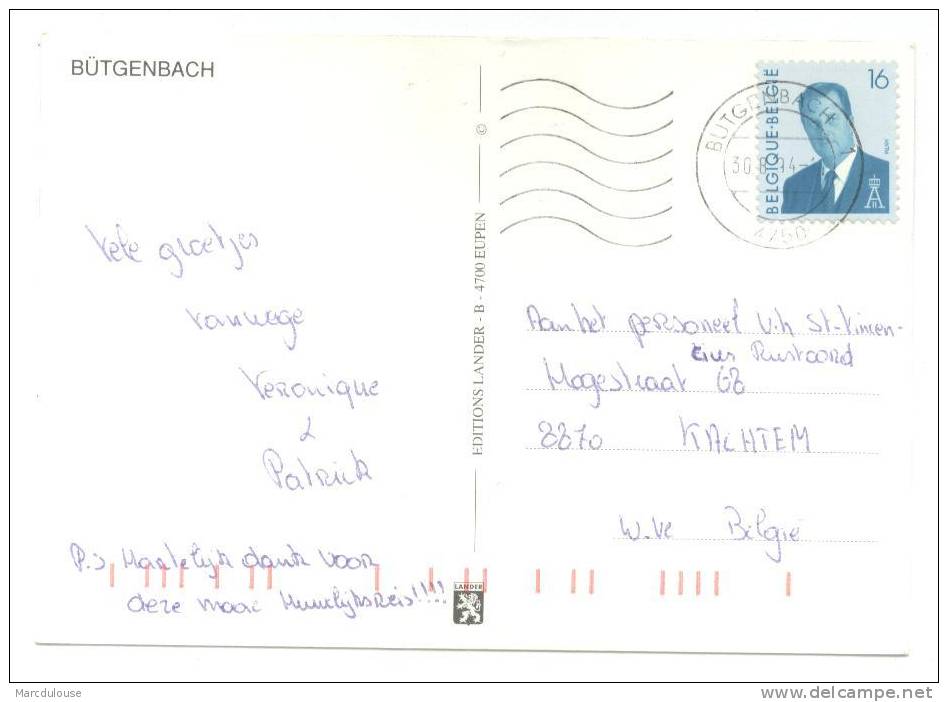 BÜTGENBACH
Vele groetjes
vanwege
Veronique
&
Patrick
P.s Hartelijk dank voor
deze mooie Huwelijksreis!!!!
©
EDITIONS LANDER - B - 4700 EUPEN
LANDER
BÜTGENBACH 1
30.8.94-
4750
BELGIQUE·BELGIË
16
MVTM
Aan het personeel v.h St-Vincen-
tius Rustoord
Hogestraat 68
8870 KACHTEM
W.Vl België
Marcdulouse
www.delcampe.net